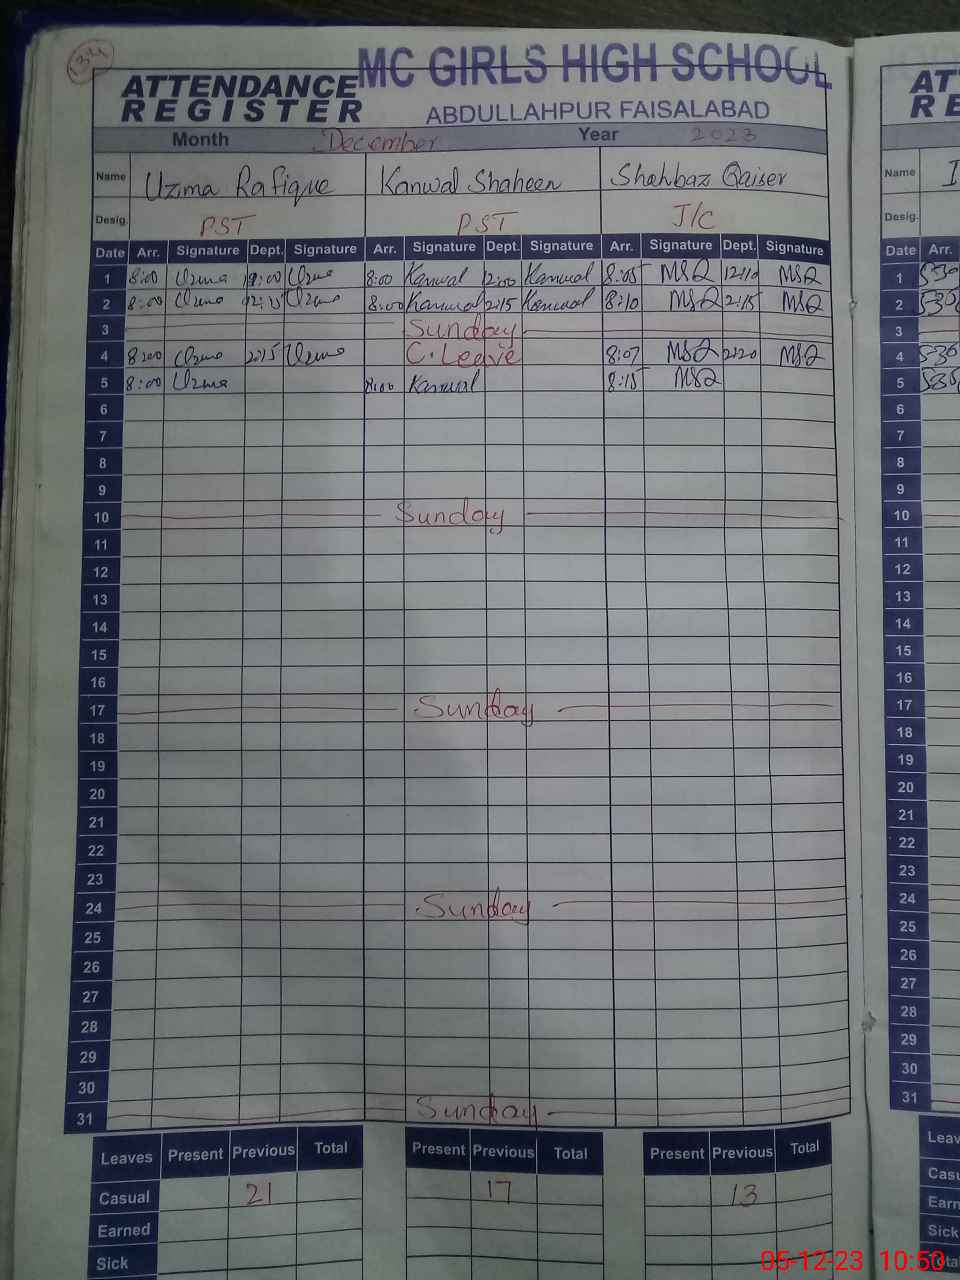 134
MC GIRLS HIGH SCHOOL
ATTENDANCE
REGISTER
ABDULLAHPUR FAISALABAD
Month December Year 2023
Name Uzma Rafique Kanwal Shaheen Shahbaz Qaiser
Desig. PST PST J/C
Date Arr. Signature Dept. Signature Arr. Signature Dept. Signature Arr. Signature Dept. Signature
1 8:00 Uzma 12:00 Uzma 8:00 Kanwal 12:00 Kanwal 8:05 MSQ 12:10 MSQ
2 8:00 Uzma 12:15 Uzma 8:00 Kanwal 2:15 Kanwal 8:10 MSQ 2:15 MSQ
3 Sunday
4 8:00 Uzma 2:15 Uzma C. Leave 8:07 MSQ 2:20 MSQ
5 8:00 Uzma 8:00 Kanwal 8:15 MSQ
6
7
8
9
10 Sunday
11
12
13
14
15
16
17 Sunday
18
19
20
21
22
23
24 Sunday
25
26
27
28
29
30
31 Sunday
Leaves Present Previous Total Present Previous Total Present Previous Total
Casual 21 17 13
Earned
Sick
ATT
RE
Name I
Desig.
Date Arr.
1
2
3
4
5
6
7
8
9
10
11
12
13
14
15
16
17
18
19
20
21
22
23
24
25
26
27
28
29
30
31
Leav
Casu
Earn
Sick
05-12-23 10:50